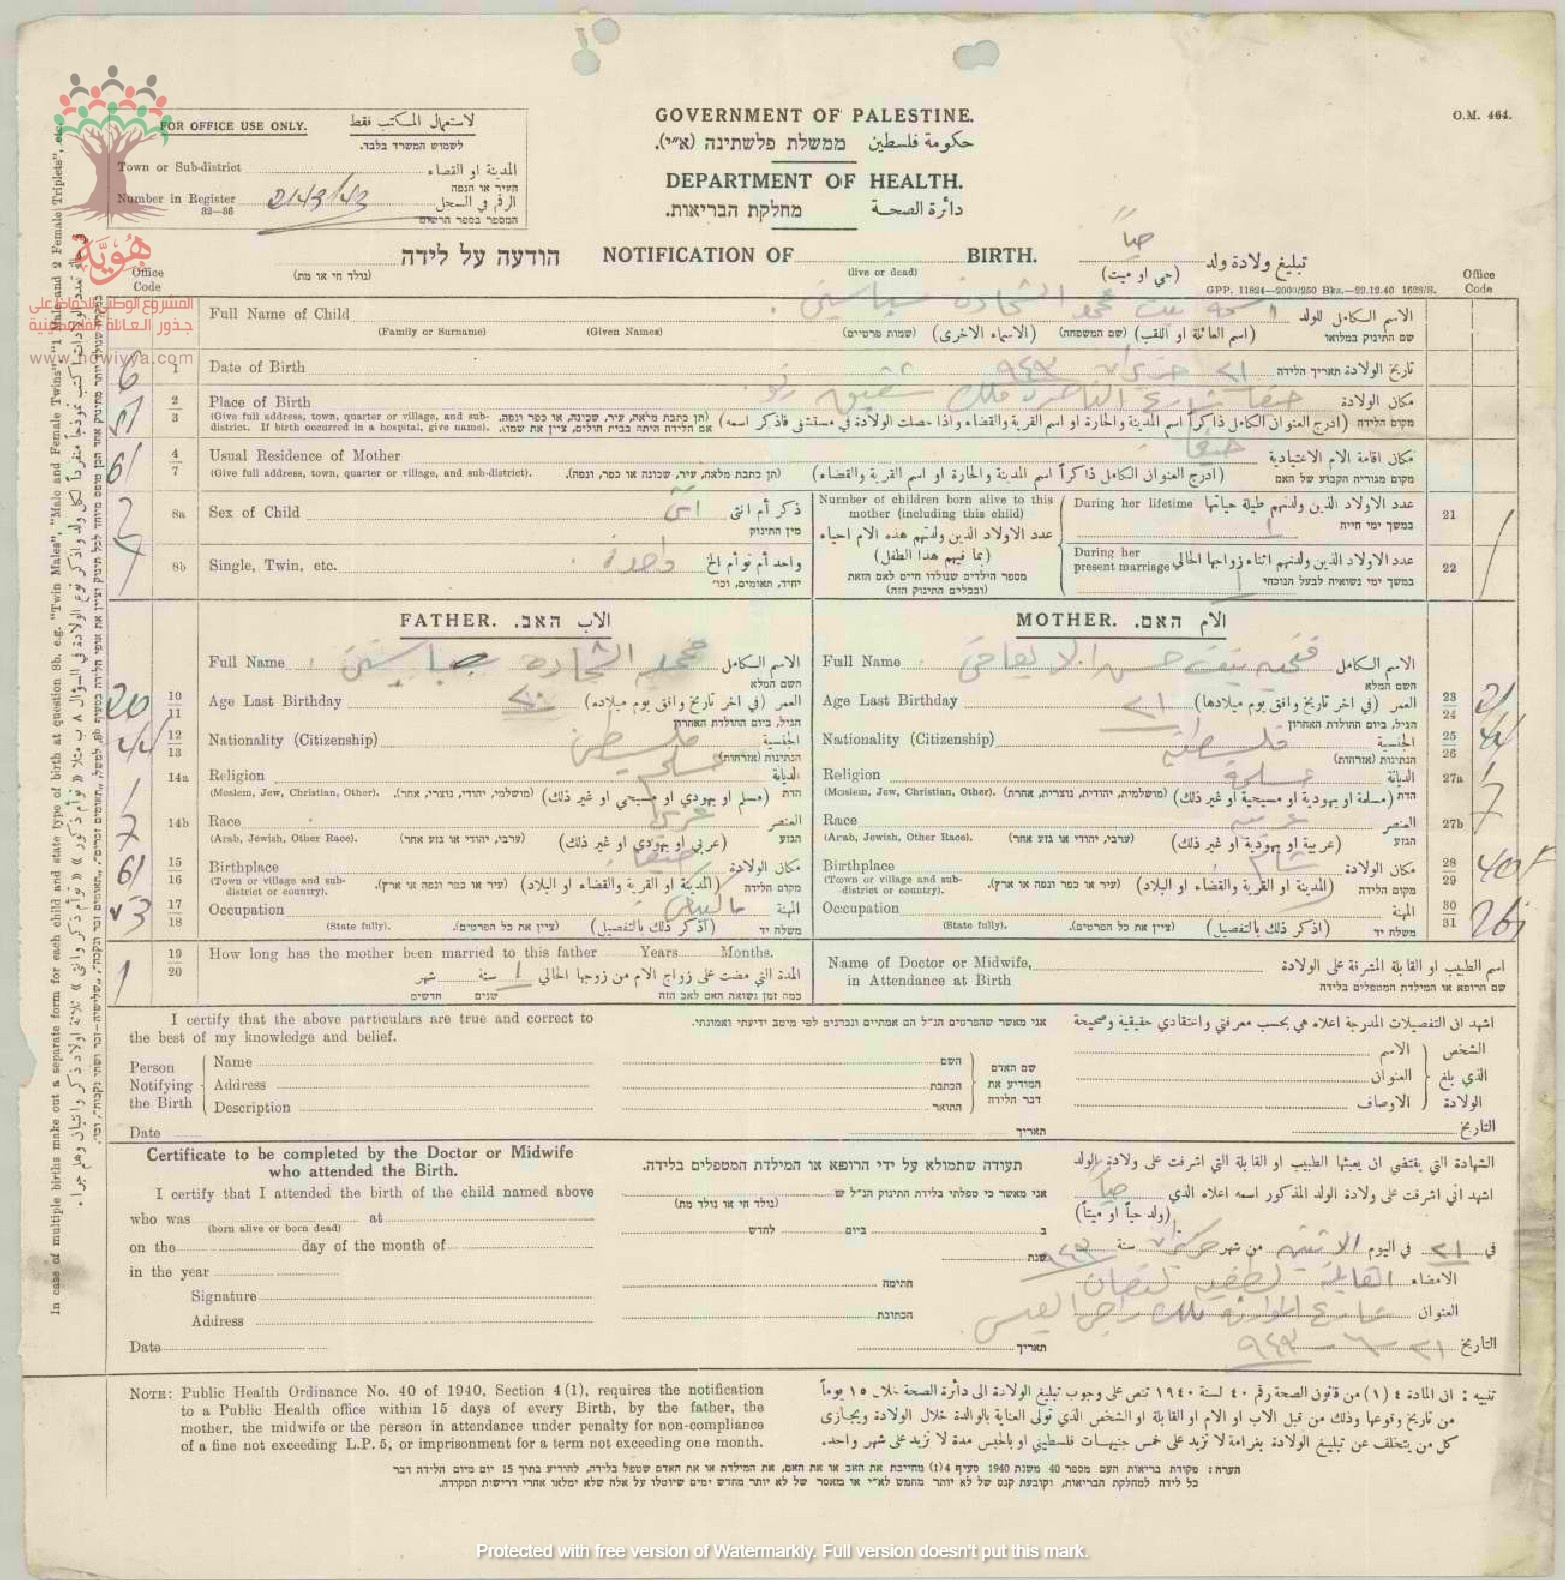 O.M. 464.
FOR OFFICE USE ONLY. لاستعمال المكتب فقط
לשמוש המשרד בלבד.
Town or Sub-district المدينة او القضاء
העיר או הנפה
Number in Register 2143/43 الرقم في السجل
32—36 המספר בספר הרשום
GOVERNMENT OF PALESTINE.
حكومة فلسطين ממשלת פלשתינה (א״י).
DEPARTMENT OF HEALTH.
دائرة الصحة מחלקת הבריאות.
הודעה על לידה NOTIFICATION OF BIRTH. حياً تبليغ ولادة ولد
(נולד חי או מת) (live or dead) (حي او ميت)
GPP. 11824—2000/250 Bks.—29.12.40 1628/S.
Office Code Office Code
هُويَّة
المشروع الوطني للحفاظ على
جذور العائلة الفلسطينية
www.howiyya.com
Full Name of Child بنت محمد الشحادة الاسم الكامل للولد
שם התינוק במלואו
(Family or Surname) (Given Names) (שמות פרטיים) (الاسماء الاخرى) (שם המשפחה) (اسم العائلة او اللقب)
6 1 Date of Birth ٢١ حزيران ٩٤٣ تاريخ الولادة תאריך הלידה
2 3 Place of Birth حيفا شارع الناصرة ملك مكان الولادة
מקום הלידה
(Give full address, town, quarter or village, and sub-district. If birth occurred in a hospital, give name). (הן כתבת מלאה, עיר, שכונה, או כפר ונפה. אם הלידה היתה בבית חולים, ציין את שמו). (ادرج العنوان الكامل ذاكراً اسم المدينة والحارة او اسم القرية والقضاء واذا حصلت الولادة في مستشفى فاذكر اسمه)
61 4 7 Usual Residence of Mother حيفا مكان اقامة الام الاعتيادية
מקום מגוריה הקבוע של האם
(Give full address, town, quarter or village, and sub-district). (הן כתבת מלאה, עיר, שכונה או כפר, ונפה). (ادرج العنوان الكامل ذاكراً اسم المدينة والحارة او اسم القرية والقضاء)
2 8a Sex of Child انثى ذكر أم انثى
מין התינוק
8b Single, Twin, etc. واحدة واحد أم توأم الخ
יחיד, תאומים, וכו׳
Number of children born alive to this mother (including this child)
عدد الاولاد الذين ولدتهم هذه الام احياء
(بما فيهم هذا الطفل)
מספר הילדים שנולדו חיים לאם הזאת
(ובכללם התינוק הזה)
During her lifetime عدد الاولاد الذين ولدتهم طيلة حياتها 21
במשך ימי חייה
1
During her present marriage عدد الاولاد الذين ولدتهم اثناء زواجها الحالي 22
במשך ימי נשואיה לבעל הנוכחי
1
FATHER. האב. الاب
Full Name محمد الشحادة الاسم الكامل
השם המלא
20 10 11 Age Last Birthday ٢٥ العمر (في اخر تاريخ وافق يوم ميلاده)
הגיל, ביום ההולדת האחרון
44 12 13 Nationality (Citizenship) فلسطيني الجنسية
הנתינות (אזרחות)
1 14a Religion مسلم الديانة
(Moslem, Jew, Christian, Other). (מושלמי, יהודי, נוצרי, אחר). (مسلم او يهودي او مسيحي او غير ذلك) הדת
7 14b Race عربي العنصر
(Arab, Jewish, Other Race). (ערבי, יהודי או גזע אחר) (عربي او يهودي او غير ذلك) הגזע
61 15 16 Birthplace حيفا مكان الولادة
(Town or village and sub-district or country). (עיר או כפר ונפה או ארץ). (المدينة او القرية والقضاء او البلاد) מקום הלידה
17 18 Occupation المهنة
(State fully). (ציין את כל הפרטים). (اذكر ذلك بالتفصيل) משלח יד
MOTHER. האם. الام
Full Name بنت حسن الاسم الكامل
השם המלא
Age Last Birthday ٢١ العمر (في اخر تاريخ وافق يوم ميلادها) 23 24 21
הגיל, ביום ההולדת האחרון
Nationality (Citizenship) فلسطينية الجنسية 25 26 44
הנתינות (אזרחות)
Religion مسلمة الديانة 27a 1
(Moslem, Jew, Christian, Other). (מושלמית, יהודית, נוצרית, אחרת). (مسلمة او يهودية او مسيحية او غير ذلك) הדת
Race عربية العنصر 27b 7
(Arab, Jewish, Other Race). (ערבי, יהודי או גזע אחר) (عربية او يهودية او غير ذلك) הגזע
Birthplace شام مكان الولادة 28 29
(Town or village and sub-district or country). (עיר או כפר ונפה או ארץ). (المدينة او القرية والقضاء او البلاد) מקום הלידה
Occupation المهنة 30 31
(State fully). (ציין את כל הפרטים). (اذكر ذلك بالتفصيل) משלח יד
1 19 20 How long has the mother been married to this father Years Months.
المدة التي مضت على زواج الام من زوجها الحالي 1 سنة شهر
כמה זמן נשואה האם לאב הזה שנים חדשים
Name of Doctor or Midwife, in Attendance at Birth اسم الطبيب او القابلة المشرفة على الولادة
שם הרופא או המילדת המטפלים בלידה
I certify that the above particulars are true and correct to the best of my knowledge and belief.
אני מאשר שהפרטים הנ״ל הם אמתיים ונכונים לפי מיטב ידיעתי ואמונתי.
اشهد انى التفصيلات المدرجة اعلاه هي بحسب معرفتي واعتقادي حقيقية وصحيحة
Person Notifying the Birth שם האדם המודיע את דבר הלידה الشخص الذي بلغ الولادة
Name השם الاسم
Address הכתבת العنوان
Description התואר الاوصاف
Date תאריך التاريخ
Certificate to be completed by the Doctor or Midwife who attended the Birth.
תעודה שתמולא על ידי הרופא או המילדת המטפלים בלידה.
الشهادة التي يقتضي ان يعبئها الطبيب او القابلة التي اشرفت على ولادة الولد
I certify that I attended the birth of the child named above
אני מאשר כי טפלתי בלידת התינוק הנ״ל ש
(נולד חי או נולד מת)
اشهد اني اشرفت على ولادة الولد المذكور اسمه اعلاه الذي حياً
(ولد حياً او ميتاً)
who was at
(born alive or born dead)
on the day of the month of
ב ביום לחדש
في ٢١ في اليوم الاثنين من شهر حزيران سنة ٩٤٣
in the year שנת
Signature חתימה الامضاء القابلة لطفية
Address הכתובת العنوان شارع ملك راجي
Date תאריך التاريخ ٢١ - ٦ - ٩٤٣
NOTE: Public Health Ordinance No. 40 of 1940, Section 4 (1), requires the notification
to a Public Health office within 15 days of every Birth, by the father, the
mother, the midwife or the person in attendance under penalty for non-compliance
of a fine not exceeding L.P. 5, or imprisonment for a term not exceeding one month.
تنبيه : انى المادة ٤ (١) من قانون الصحة رقم ٤٠ لسنة ١٩٤٠ تنص على وجوب تبليغ الولادة الى دائرة الصحة خلال ١٥ يوماً
من تاريخ وقوعها وذلك من قبل الاب او الام او القابلة او الشخص الذي تولى العناية بالوالدة خلال الولادة ويجازى
كل من يتخلف عن تبليغ الولادة بغرامة لا تزيد على خمس جنيهات فلسطيني او بالحبس مدة لا تزيد على شهر واحد.
הערה : פקודת בריאות העם מספר 40 משנת 1940 סעיף 4(1) מחייבת את האב או את האם, את המילדת או את האדם שטפל בלידה, להודיע בתוך 15 יום מיום הלידה דבר
כל לידה למחלקת הבריאות, וקובעת קנס של לא יותר מחמש לא״י או מאסר של לא יותר מחדש ימים שיוטלו על אלה שלא ימלאו אחרי דרישות הפקודה.
In case of multiple births make out a separate form for each child and state type of birth at question 8b, e.g. "Twin Males", "Male and Female Twins", "1 Male and 2 Female Triplets", etc.
Protected with free version of Watermarkly. Full version doesn't put this mark.